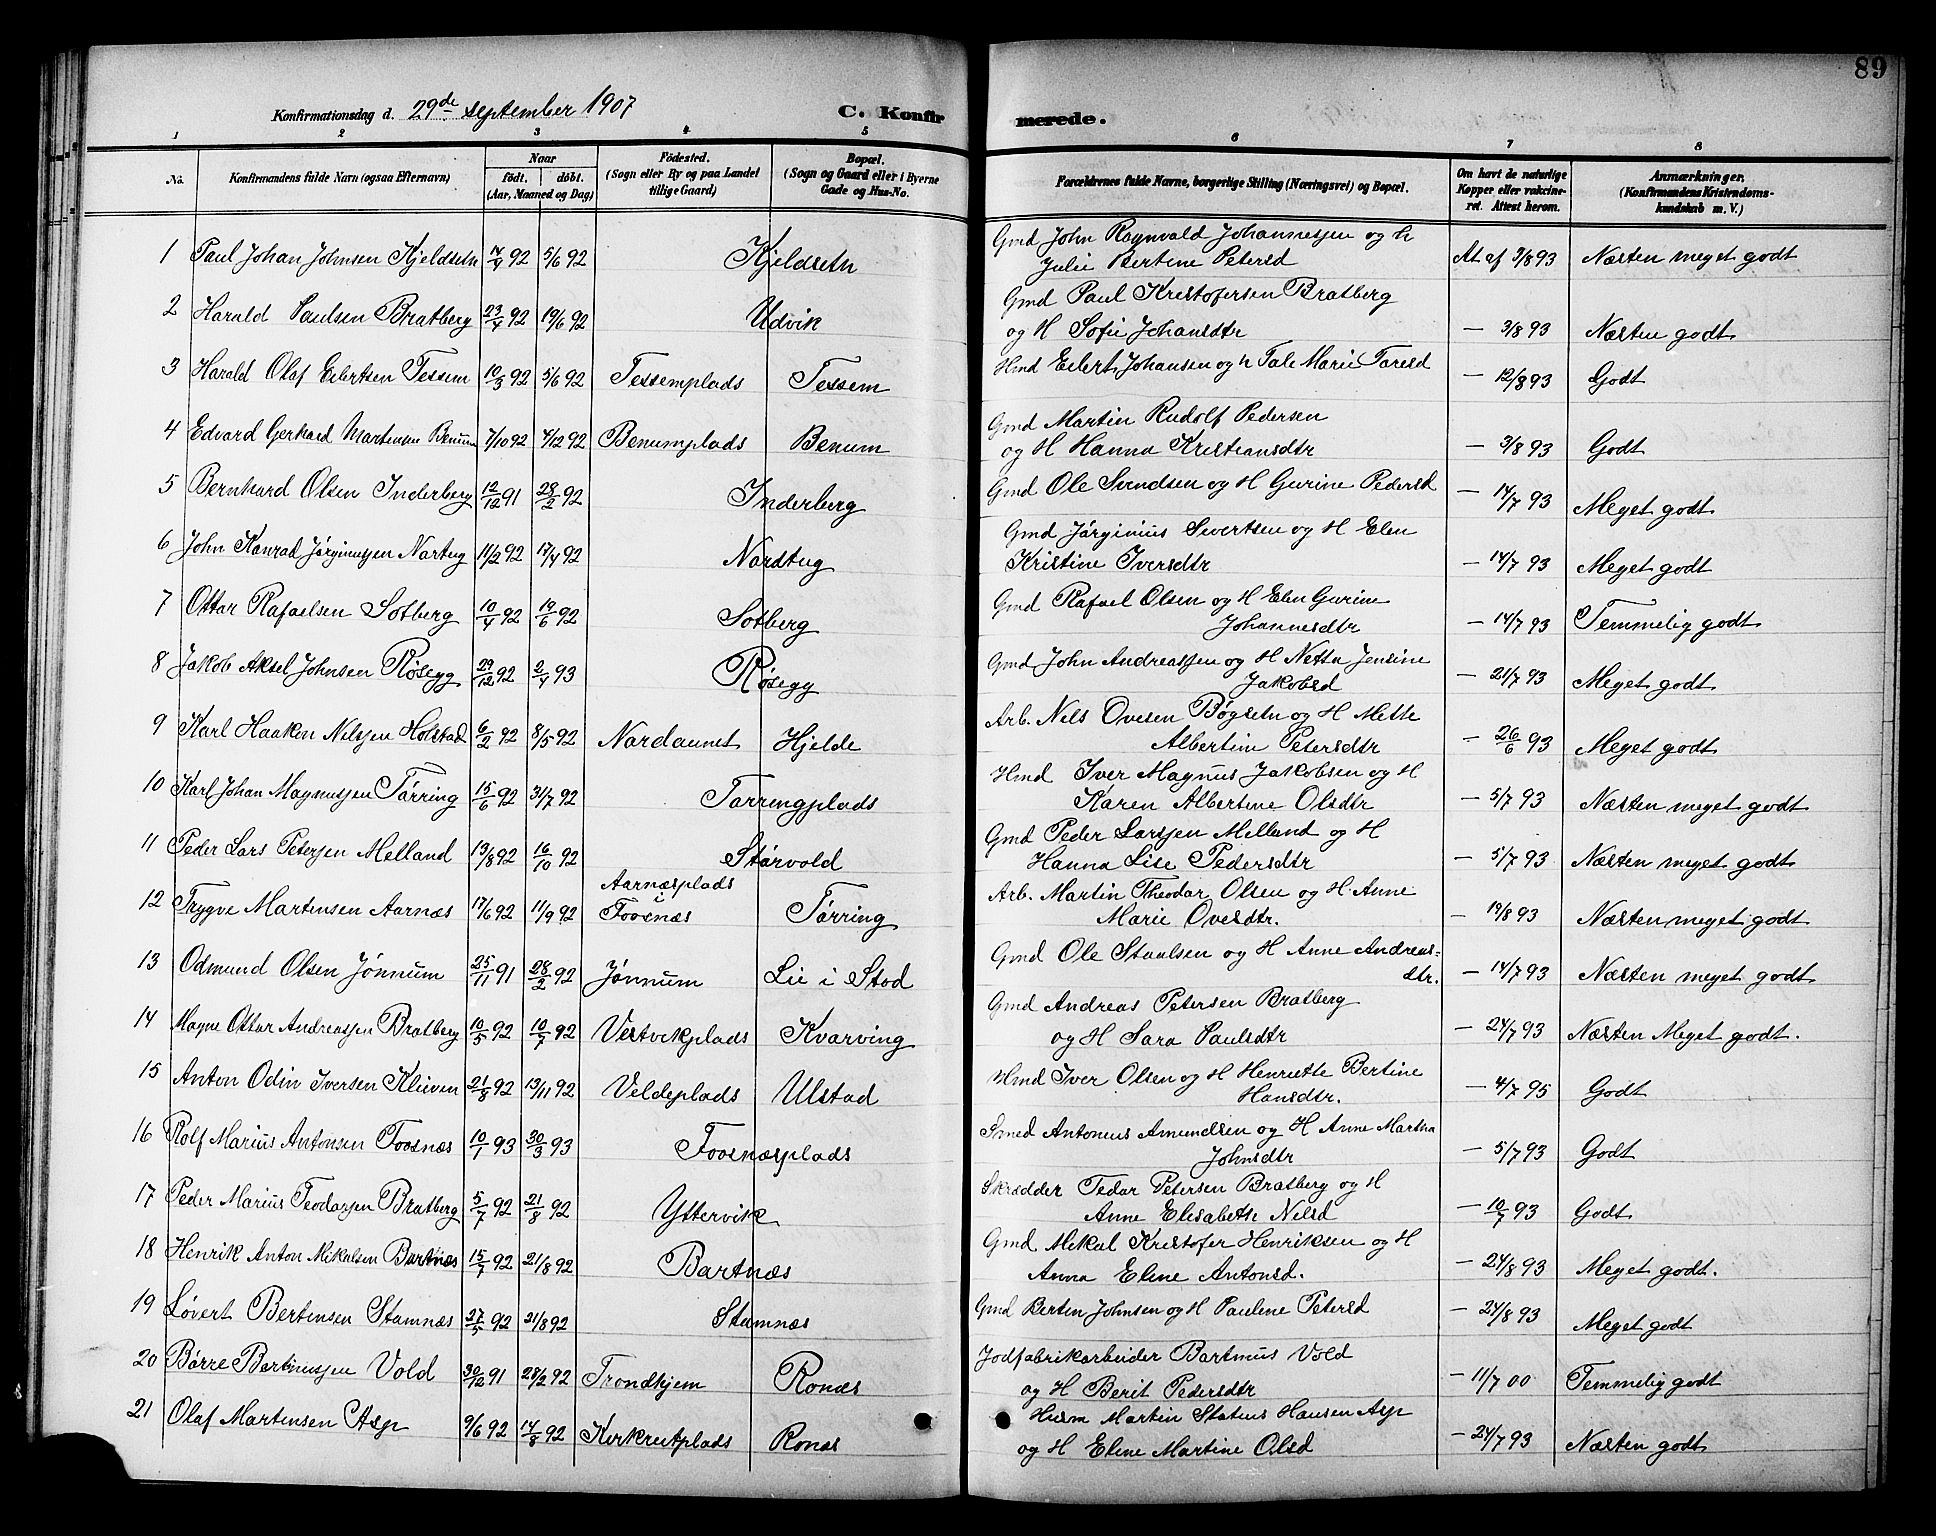 89
Konfirmationsdag d. 29de september 1907 C. Konfirmerede.
1 2 3 4 5 6 7 8
No. Konfirmandens fulde Navn (ogsaa Efternavn) Naar født. døbt. (Aar, Maaned og Dag) Fødested. (Sogn eller By og paa Landet tillige Gaard) Bopæl. (Sogn og Gaard eller i Byerne Gade og Hus-No. Forældrenes fulde Navne, borgerlige Stilling (Næringsvei) og Bopæl. Om havt de naturlige Kopper eller vakcineret. Attest herom. Anmærkninger. (Konfirmandens Kristendomskundskab m. V.)
1 Paul Johan Johnsen Kjeldsetn 92 5/6 92 Kjeldsetn Gmd John Ragnvald Johannesjen og h
Julie Bertine Petersd At af 3/8 93 Næsten meget godt
2 Harald Paulsen Bratberg 23/4 92 19/6 92 Udvik Gmd Paul Kristofersen Bratberg
og H Sofie Johansdtr — 3/8 93 Næsten godt
3 Harald Olaf Eilertsen Tessem 10/3 92 5/6 92 Tessemplads Tessem Hmd Eilert Johansen og h Tale Marie Taresd — 12/8 93 Godt
4 Edvard Gerhard Martinsen Benum 7/10 92 4/12 92 Benumplads Benum Gmd Martin Rudolf Pedersen
og H Hanna Kristiansdtr — 3/8 93 Godt
5 Bernhard Olsen Inderberg 12/12 91 28/2 92 Inderberg Gmd Ole Svendsen og H Gurine Pedersd — 14/7 93 Meget godt
6 John Konrad Jørginusjen Nartug 11/2 92 17/4 92 Nardtug Gmd Jørginius Sivertsen og H Elen
Kristine Iversdtr — 14/7 93 Meget godt
7 Ottar Rafaelsen Solberg 10/4 92 19/6 92 Solberg Gmd Rafael Olsen og H Elen Gurine
Johannesdtr — 14/7 93 Temmelig godt
8 Jakob Aksel Johnsen Røsegg 29/12 92 2/4 93 Røsegg Gmd John Andreasjen og H Netta Jensine
Jakobsd — 21/7 93 Meget godt
9 Karl Haaken Nilsjen Holstad 6/2 92 8/5 92 Nordaunet Hjelde Arb. Nels Ovesen Bøgsetn og H Mette
Albertine Petersdtr — 26/6 93 Meget godt
10 Karl Johan Magnusjen Tørring 15/6 92 31/7 92 Tørringplads Hmd Iver Magnus Jakobsen og H
Karen Albertine Olsdtr — 5/7 93 Næsten meget godt
11 Peder Lars Petersjen Melland 13/8 92 16/10 92 Størvold Gmd Peder Larsjen Melland og H
Hanna Lise Pedersdtr — 5/7 93 Næsten meget godt
12 Trygve Martensen Aarnæs 17/6 92 11/9 92 Aarnæsplads i Foosnæs Tørring Arb. Martin Theodor Olsen og H Anne
Marie Ovesdtr. — 19/8 93 Næsten meget godt
13 Odmund Olsen Jønnum 25/11 91 28/2 92 Jønnum Lie i Stod Gmd Ole Staalsen og H Anne Andreas=
dtr. — 14/7 93 Næsten meget godt
14 Magne Ottar Andreasjen Bratberg 10/5 92 10/7 92 Vestvikplads Kvarving Gmd Andreas Petersen Bratberg
og H Sara Paulsdtr — 24/7 93 Næsten Meget godt.
15 Anton Odin Iversen Kleiven 21/8 92 13/11 92 Veldeplads Ulstad Hmd Iver Olsen og H Henriette Bertine
Hansdtr. — 4/7 95 Godt
16 Rolf Marius Antonsen Foosnæs 10/1 93 30/3 93 Foosnæsplads Smed Antoneus Amundsen og H Anne Martha
Johnsdtr — 5/7 93 Godt
17 Peder Marius Teodorsjen Bratberg 5/7 92 21/8 92 Yttervik Skrædder Tedor Petersen Bratberg og H
Anne Elisabeth Nelsd — 10/7 93 Godt
18 Henrik Anton Mikalsen Bartnæs 15/7 92 21/8 92 Bartnæs Gmd Mikal Kristofer Henriksen og H
Anna Eline Antonsd. — 24/8 93 Meget godt.
19 Løvert Bertensen Stamnæs 27/5 92 21/8 92 Stamnæs Gmd Berten Johnsen og H Pauline Petersd — 24/8 93 Meget godt
20 Børre Bartinusjen Vold 30/12 91 28/2 92 Trondhjem Ronæs Jodfabrikarbeider Bartinus Vold
og H Berit Pedersdtr — 11/7 00 Temmelig godt
21 Olaf Martensen Asp 9/6 92 14/8 92 Kirkreitplads Ronæs Husm Martin Statius Hansen Asp
og H Eline Martine Olsd — 24/7 93 Næsten godt